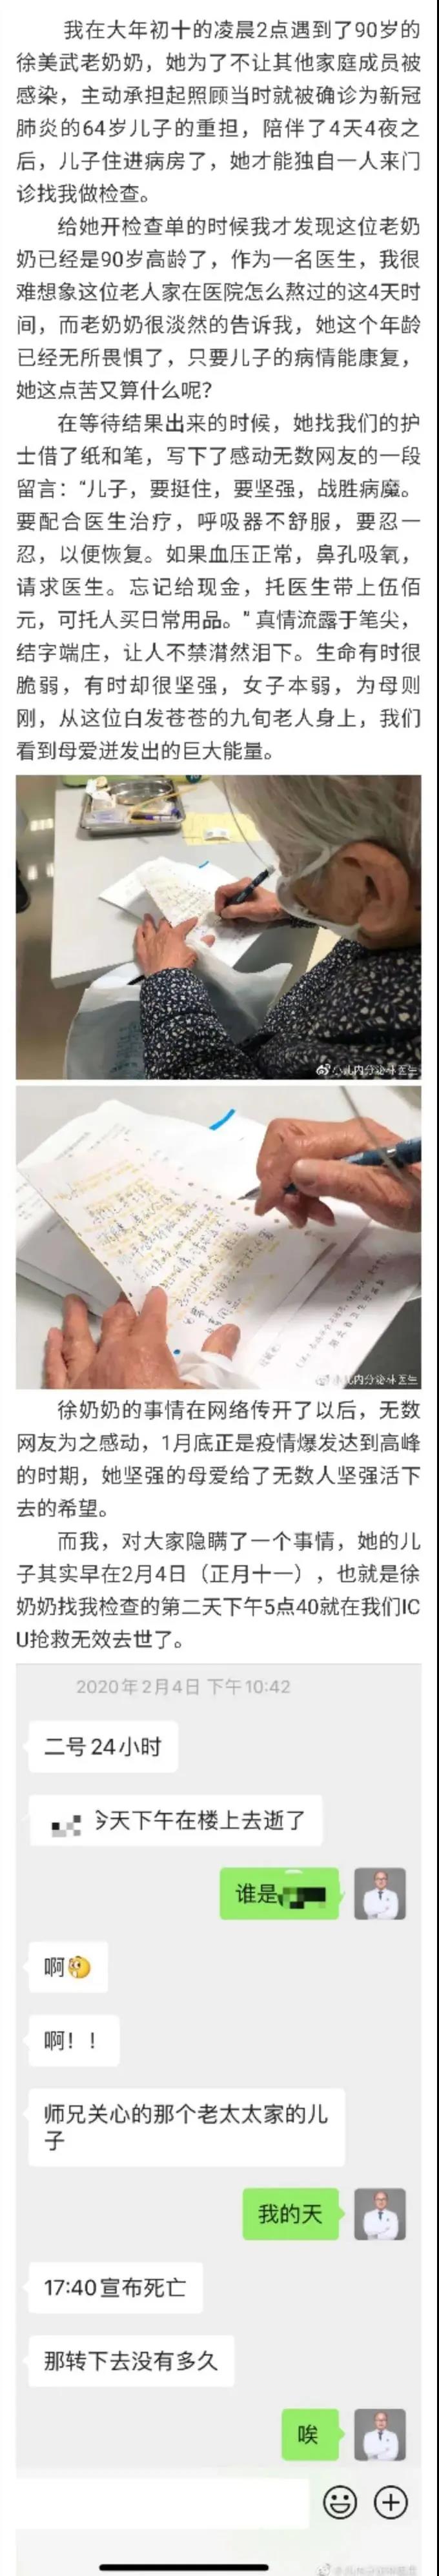 我在大年初十的凌晨2点遇到了90岁的
徐美武老奶奶，她为了不让其他家庭成员被
感染，主动承担起照顾当时就被确诊为新冠
肺炎的64岁儿子的重担，陪伴了4天4夜之
后，儿子住进病房了，她才能独自一人来门
诊找我做检查。
给她开检查单的时候我才发现这位老奶
奶已经是90岁高龄了，作为一名医生，我很
难想象这位老人家在医院怎么熬过的这4天时
间，而老奶奶很淡然的告诉我，她这个年龄
已经无所畏惧了，只要儿子的病情能康复，
她这点苦又算什么呢？
在等待结果出来的时候，她找我们的护
士借了纸和笔，写下了感动无数网友的一段
留言：“儿子，要挺住，要坚强，战胜病魔。
要配合医生治疗，呼吸器不舒服，要忍一
忍，以便恢复。如果血压正常，鼻孔吸氧，
请求医生。忘记给现金，托医生带上伍佰
元，可托人买日常用品。”真情流露于笔尖，
结字端庄，让人不禁潸然泪下。生命有时很
脆弱，有时却很坚强，女子本弱，为母则
刚，从这位白发苍苍的九旬老人身上，我们
看到母爱迸发出的巨大能量。
小儿内分泌林医生
小儿内分泌林医生
徐奶奶的事情在网络传开了以后，无数
网友为之感动，1月底正是疫情爆发达到高峰
的时期，她坚强的母爱给了无数人坚强活下
去的希望。
而我，对大家隐瞒了一个事情，她的儿
子其实早在2月4日（正月十一），也就是徐
奶奶找我检查的第二天下午5点40就在我们IC
U抢救无效去世了。
2020年2月4日 下午10:42
二号24小时
今天下午在楼上去逝了
谁是
啊
啊！！
师兄关心的那个老太太家的儿
子
我的天
17:40宣布死亡
那转下去没有多久
唉